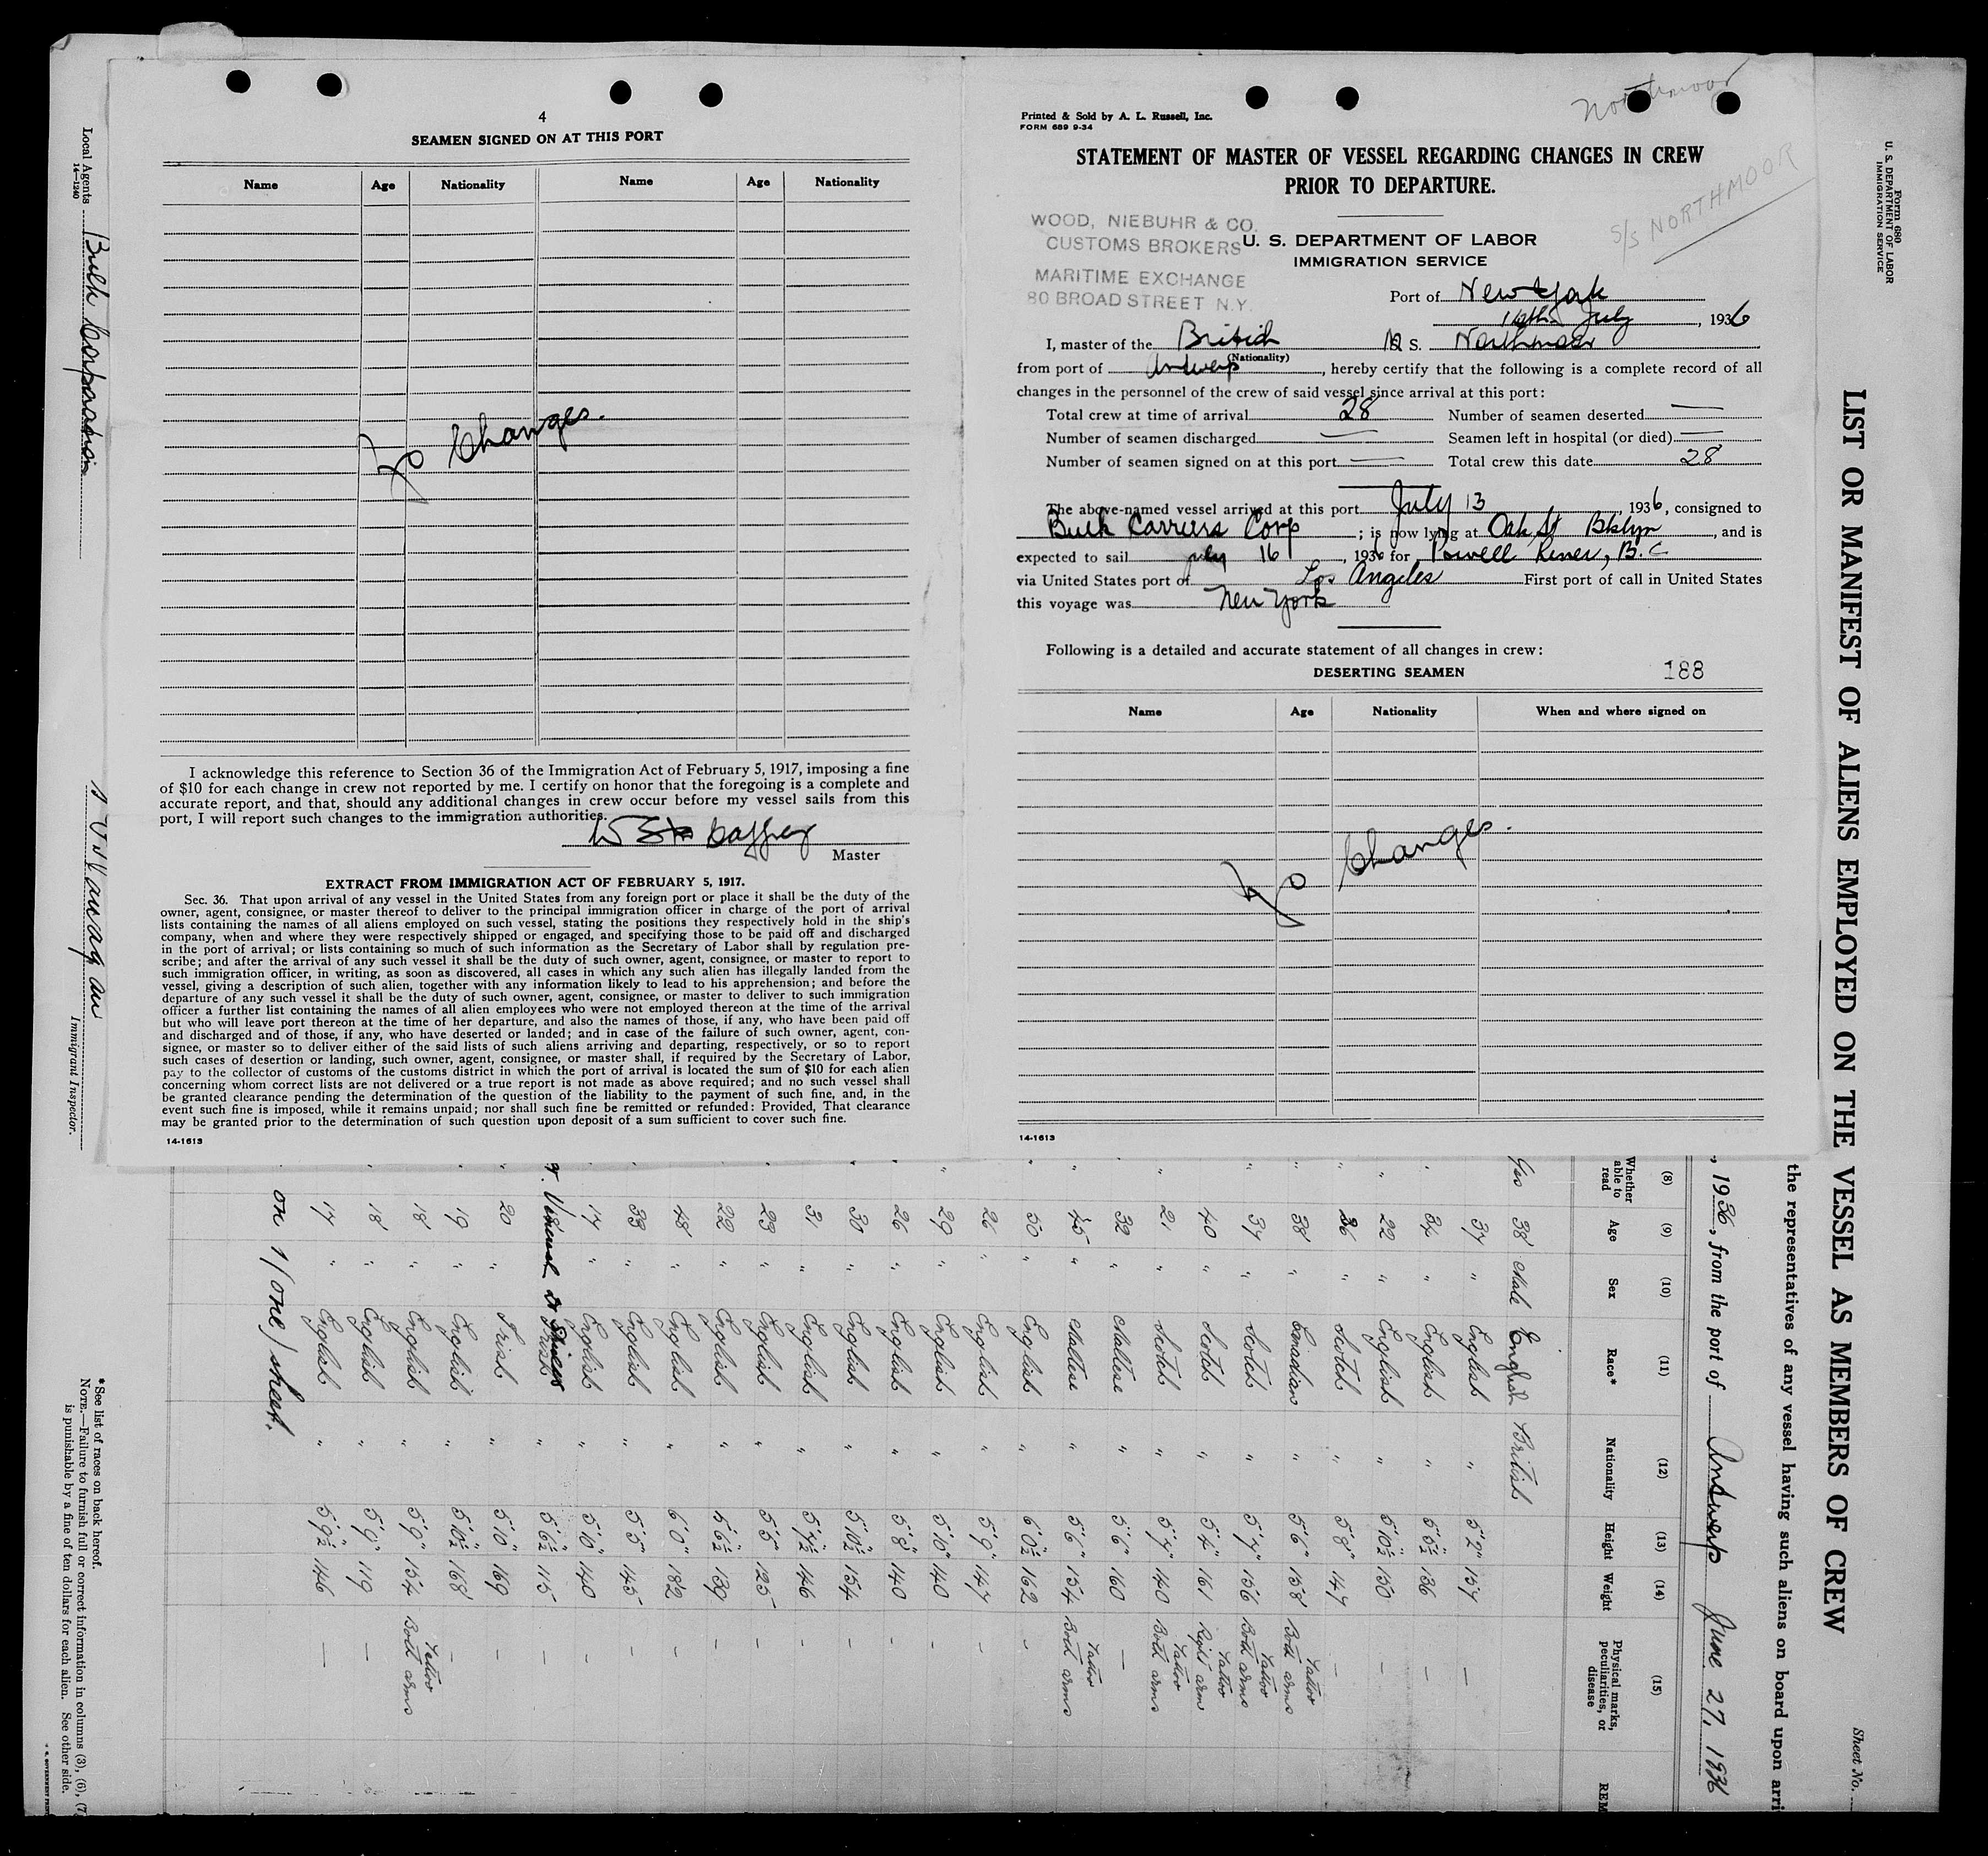 4
SEAMEN SIGNED ON AT THIS PORT
Name Age Nationality Name Age Nationality
No Changes.
I acknowledge this reference to Section 36 of the Immigration Act of February 5, 1917, imposing a fine
of $10 for each change in crew not reported by me. I certify on honor that the foregoing is a complete and
accurate report, and that, should any additional changes in crew occur before my vessel sails from this
port, I will report such changes to the immigration authorities.
Master
EXTRACT FROM IMMIGRATION ACT OF FEBRUARY 5, 1917.
Sec. 36. That upon arrival of any vessel in the United States from any foreign port or place it shall be the duty of the
owner, agent, consignee, or master thereof to deliver to the principal immigration officer in charge of the port of arrival
lists containing the names of all aliens employed on such vessel, stating the positions they respectively hold in the ship's
company, when and where they were respectively shipped or engaged, and specifying those to be paid off and discharged
in the port of arrival; or lists containing so much of such information as the Secretary of Labor shall by regulation pre-
scribe; and after the arrival of any such vessel it shall be the duty of such owner, agent, consignee, or master to report to
such immigration officer, in writing, as soon as discovered, all cases in which any such alien has illegally landed from the
vessel, giving a description of such alien, together with any information likely to lead to his apprehension; and before the
departure of any such vessel it shall be the duty of such owner, agent, consignee, or master to deliver to such immigration
officer a further list containing the names of all alien employees who were not employed thereon at the time of the arrival
but who will leave port thereon at the time of her departure, and also the names of those, if any, who have been paid off
and discharged and of those, if any, who have deserted or landed; and in case of the failure of such owner, agent, con-
signee, or master so to deliver either of the said lists of such aliens arriving and departing, respectively, or so to report
such cases of desertion or landing, such owner, agent, consignee, or master shall, if required by the Secretary of Labor,
pay to the collector of customs of the customs district in which the port of arrival is located the sum of $10 for each alien
concerning whom correct lists are not delivered or a true report is not made as above required; and no such vessel shall
be granted clearance pending the determination of the question of the liability to the payment of such fine, and, in the
event such fine is imposed, while it remains unpaid; nor shall such fine be remitted or refunded: Provided, That clearance
may be granted prior to the determination of such question upon deposit of a sum sufficient to cover such fine.
14-1613
Northmoor
Printed & Sold by A. L. Russell, Inc.
FORM 689 9-34
STATEMENT OF MASTER OF VESSEL REGARDING CHANGES IN CREW
PRIOR TO DEPARTURE.
S/S NORTHMOOR
WOOD, NIEBUHR & CO.
CUSTOMS BROKERS
MARITIME EXCHANGE
80 BROAD STREET N.Y.
U. S. DEPARTMENT OF LABOR
IMMIGRATION SERVICE
Port of New York
16th July, 1936
I, master of the British S. Northmoor
(Nationality)
from port of Antwerp, hereby certify that the following is a complete record of all
changes in the personnel of the crew of said vessel since arrival at this port:
Total crew at time of arrival 28 Number of seamen deserted —
Number of seamen discharged — Seamen left in hospital (or died) —
Number of seamen signed on at this port — Total crew this date 28
The above-named vessel arrived at this port July 13, 1936, consigned to
Bulk Carriers Corp; is now lying at Oak St Bklyn, and is
expected to sail July 16, 1936 for Powell River, B.C
via United States port of Los Angeles First port of call in United States
this voyage was New York
Following is a detailed and accurate statement of all changes in crew:
DESERTING SEAMEN 188
Name Age Nationality When and where signed on
No Changes.
14-1613
Form 680
U. S. DEPARTMENT OF LABOR
IMMIGRATION SERVICE
LIST OR MANIFEST OF ALIENS EMPLOYED ON THE VESSEL AS MEMBERS OF CREW
Sheet No.
the representatives of any vessel having such aliens on board upon arri
, 1936, from the port of Antwerp June 27, 1936
(8) (9) (10) (11) (12) (13) (14) (15)
Whether able to read Age Sex Race* Nationality Height Weight Physical marks, peculiarities, or disease REM
Yes 38 Male English British
37 " English " 5'2" 157 —
34 " English " 5'8½" 136 —
22 " English " 5'10½" 150 —
36 " Scotch " 5'8" 147 —
38 " " 5'6" 158 Tattoo Both arms
37 " Scotch " 5'7" 156 Tattoo Both arms
40 " Scotch " 5'4" 161 Tattoo Right arm
21 " Scotch " 5'7" 140 Tattoo Both arms
32 " Maltese " 5'6" 160 —
45 " Maltese " 5'6" 154 Tattoo Both arms
50 " English " 6'0½" 162 -
26 " English " 5'9" 147 -
29 " English " 5'10" 140 -
26 " English " 5'8" 140 -
30 " English " 5'10½" 154 -
31 " English " 5'7½" 146 -
23 " English " 5'5" 125 -
22 " English " 5'6½" 139 -
48 " English " 6'0" 182 -
33 " English " 5'5" 145 -
17 " English " 5'10" 140 -
" 5'6½" 115 -
20 " Irish " 5'10" 169 -
19 " English " 5'10½" 168 -
18 " English " 5'9" 154 Tattoo Both arms
18 " English " 5'9" 119 —
17 " English " 5'9½" 146 —
on 1/one/ sheet.
*See list of races on back hereof.
NOTE.—Failure to furnish full or correct information in columns (3), (6), (7)
is punishable by a fine of ten dollars for each alien. See other side.
Local Agents Bulk Corporation
14-1240
Immigrant Inspector.